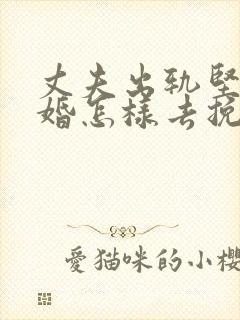 丈夫出轨坚
婚怎样去挽
爱猫咪的小樱